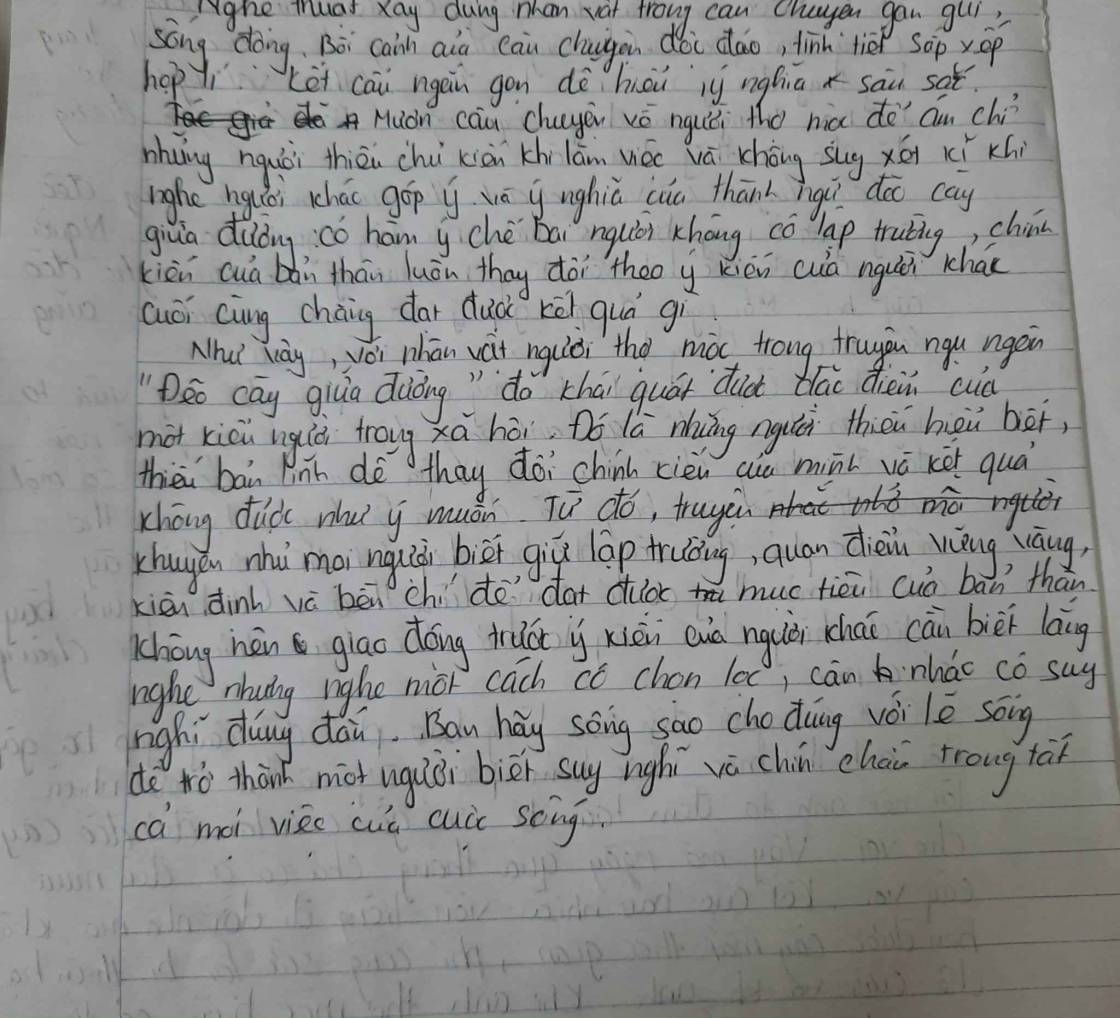 Nghệ thuật xây dựng nhân vật trong câu chuyện gần gũi,
sống động. Bối cảnh của câu chuyện độc đáo, tình tiết sắp xếp
hợp lí. Kết cấu ngắn gọn dễ hiểu, ý nghĩa sâu sắc.
Tác giả đã Mượn câu chuyện về người thợ mộc để ám chỉ
những người thiếu chủ kiến khi làm việc và không suy xét kĩ khi
nghe người khác góp ý. và ý nghĩa của thành ngữ đẽo cày
giữa đường có hàm ý chê bai người không có lập trường, chính
kiến của bản thân luôn thay đổi theo ý kiến của người khác
cuối cùng chẳng đạt được kết quả gì.
Như vậy, với nhân vật người thợ mộc trong truyện ngụ ngôn
"Đẽo cày giữa đường" đã khái quát được đặc điểm của
một kiểu người trong xã hội. Đó là những người thiếu hiểu biết,
thiếu bản lĩnh dễ thay đổi chính kiến của mình và kết quả
không được như ý muốn. Từ đó, truyện nhắc nhở mỗi người
khuyên nhủ mọi người biết giữ lập trường, quan điểm vững vàng,
kiên định và bền chí để đạt được mục tiêu của bản thân.
không nên giao động trước ý kiến của người khác cần biết lắng
nghe nhưng nghe một cách có chọn lọc, cân nhắc có suy
nghĩ đúng đắn. Bạn hãy sống sao cho đúng với lẽ sống
để trở thành một người biết suy nghĩ và chín chắn trong tất
cả mọi việc của cuộc sống.